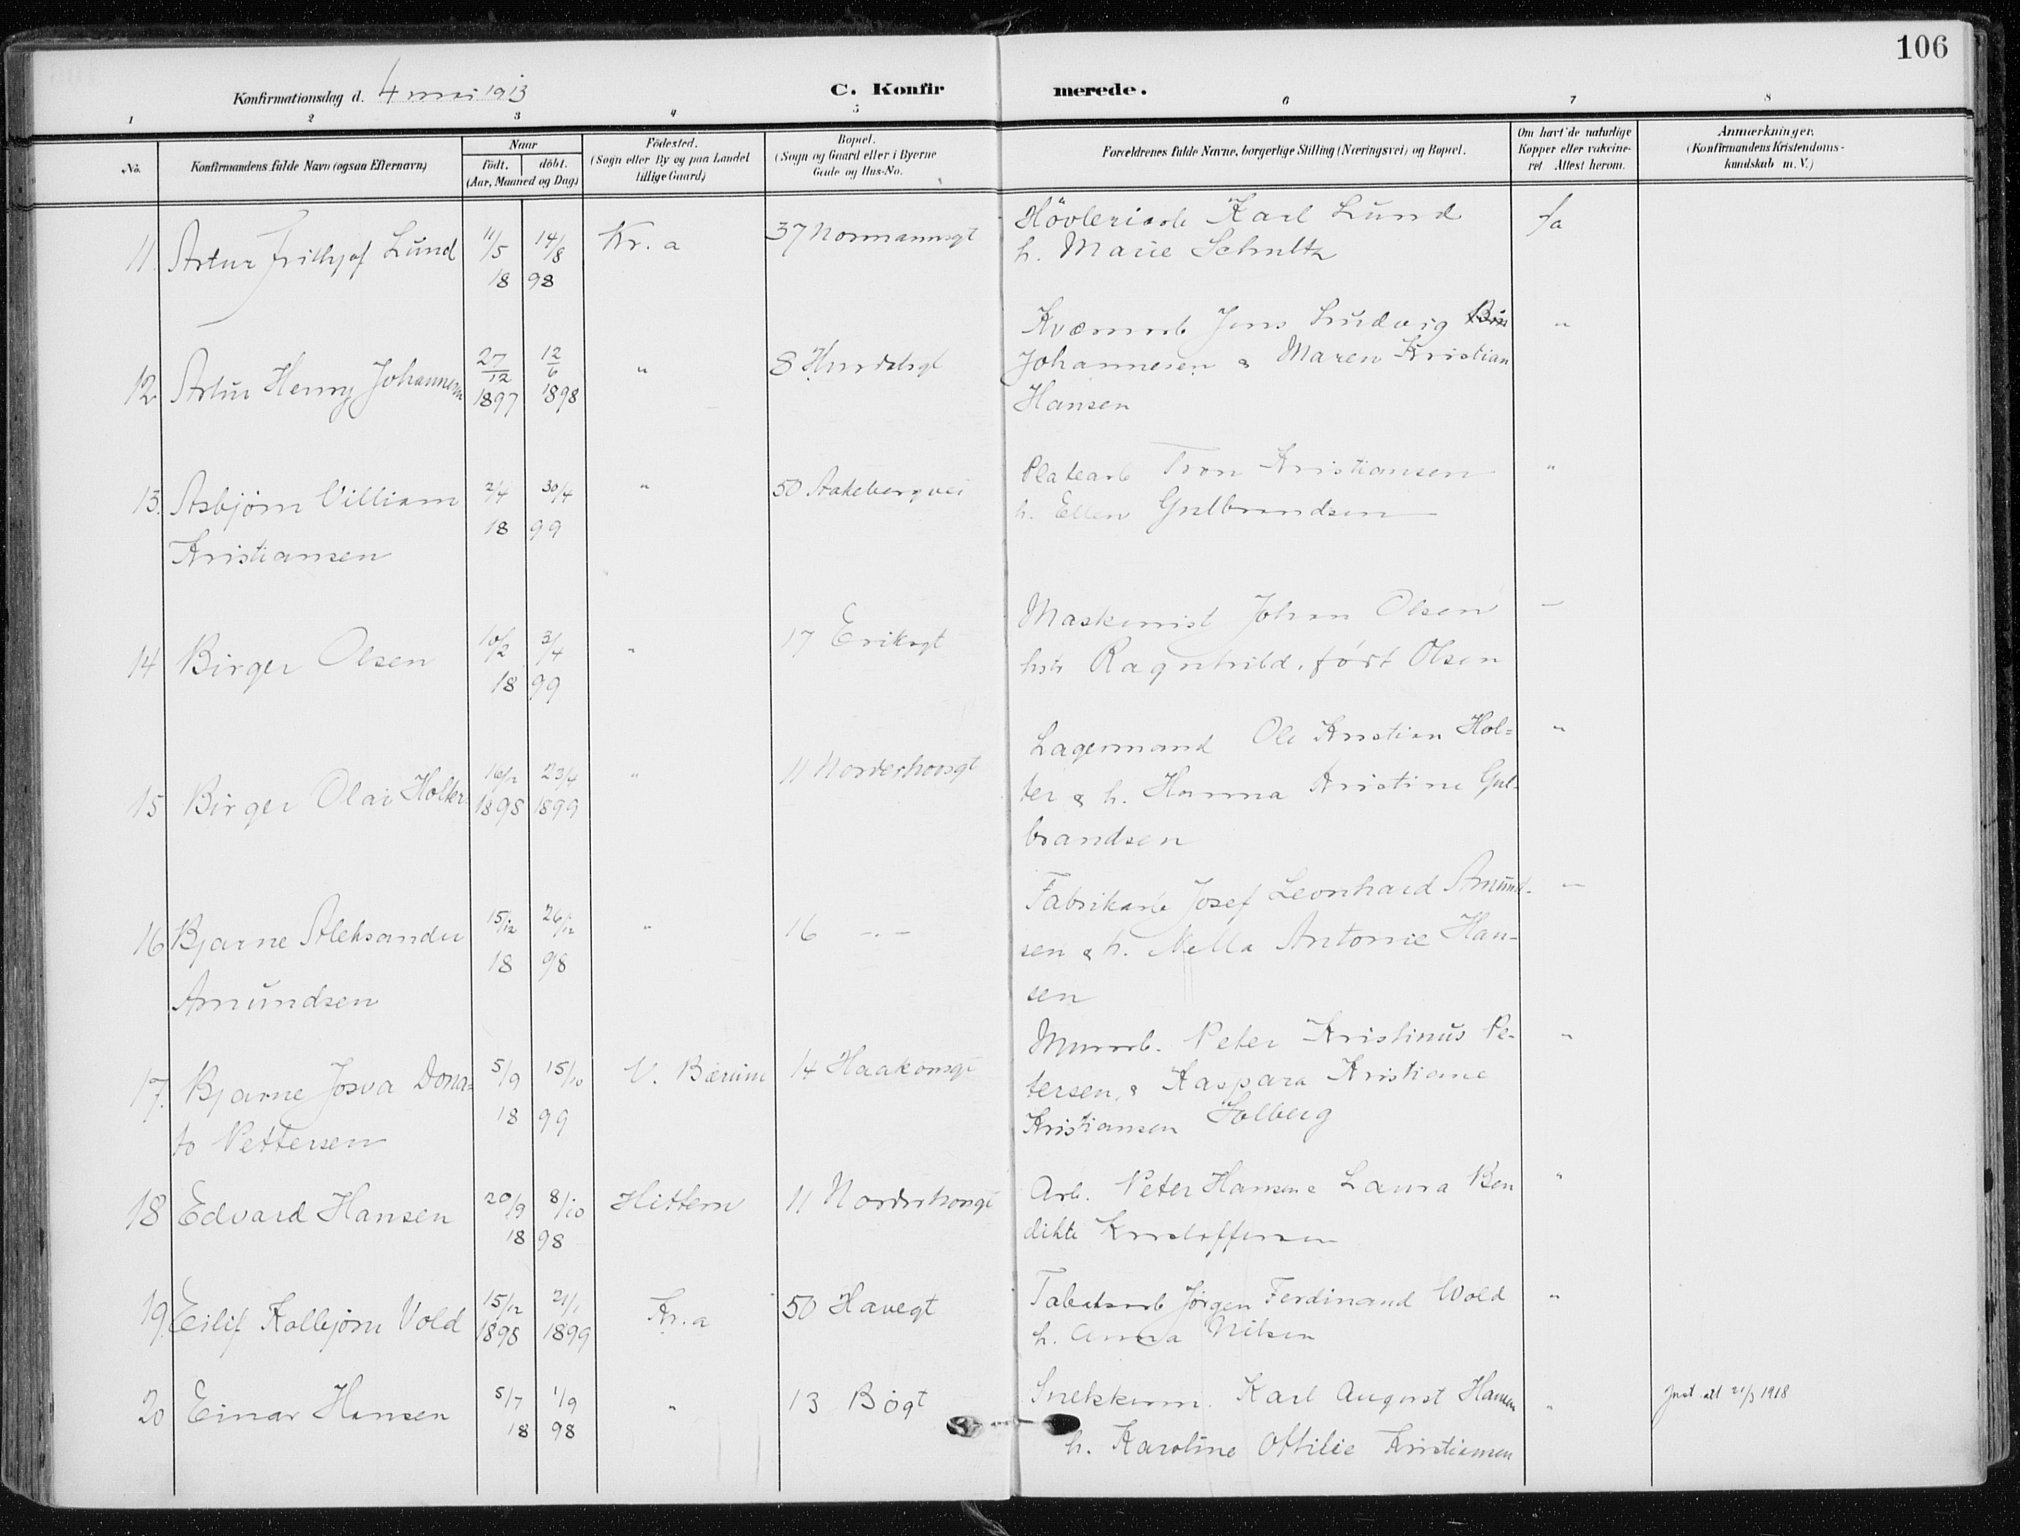 106
Konfirmationsdag d. 4 mai 1913
C. Konfirmerede.
1 2 3 4 5 6 7 8
No.
Konfirmandens fulde Navn (ogsaa Efternavn)
Naar
födt. döbt.
(Aar, Maaned og Dag)
Födested.
(Sogn eller By og paa Landet
tillige Gaard)
Bopæl.
(Sogn og Gaard eller i Byerne
Gade og Hus-No.
Forældrenes fulde Navne, borgerlige Stilling (Næringsvei) og Bopæl.
Om havt de naturlige
Kopper eller vakcine-
ret Attest herom.
Anmærkninger.
(Konfirmandens Kristendoms-
kundskab m. V.)
11. Artur Frithjof Lund 11/5 14/8 Kr. a 37 Normannsgt
18 98
Hövleriarb Karl Lund
h. Marie Schultz
/a
12 Artur Henry Johannesen 27/12 12/6 " 8 Hurdalsgt
1897 1898
Kværnarb Jens Ludvig
Johannesen & Maren Kristian
Hansen
"
13. Asbjörn Villiam 2/4 30/4 " 50 Aakebergvei
Kristiansen 18 99
Platearb Tron Kristiansen
h. Ellen Gulbrandsen
"
14 Birger Olsen 10/2 3/4 " 17 Eriksgt
18 99
Maskinist Johan Olsen
hstr Ragnhild, födt Olsen
"
15 Birger Olai Holter 16/12 23/4 " 11 Norderhovsgt
1898 1899
Lagermand Ole Kristian Hol=
ter & h. Hanna Kristine Gul-
brandsen
"
16 Bjarne Aleksander 15/12 26/12 " 16 -"-
Amundsen 18 98
Fabrikarb Josef Leonhard Amund-
sen & h. Mella Antonie Han-
sen
"
17. Bjarne Josva Dona= 5/9 15/10 V. Bærum 14 Haakonsgt
to Pettersen 18 99
Murarb. Peter Kristinus Pe-
tersen, & Kaspara Kristiane
Kristiansen Solberg
"
18 Edvard Hansen 20/9 8/10 Hittern 11 Norderhovsgt
18 98
Arb. Peter Hansen & Laura Ben
dikte Kristoffersen
"
19. Eilif Kolbjörn Vold 15/12 21/1 Kr. a 50 Havegt
1898 1899
Jörgen Ferdinand Wold
h. Anna Nilsen
"
20 Einar Hansen 5/7 1/9 " 13 Bögt
18 98
Snekkerm. Karl August Hansen
h. Karoline Ottilie Kristiansen
"
1918